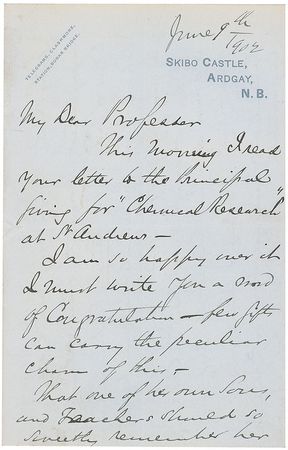 TELEGRAMS, CLASHMORE.
STATION, BONAR BRIDGE.
June 9th
1902
SKIBO CASTLE,
ARDGAY,
N.B.
My Dear Professor
This morning I read
your letter to the Principal
giving for "Chemical Research"
at St Andrews —
I am so happy over it
I must write you a word
of Congratulation — few gifts
can carry the peculiar
charm of this —
That one of her own Sons,
and Teachers should so
sweetly remember her